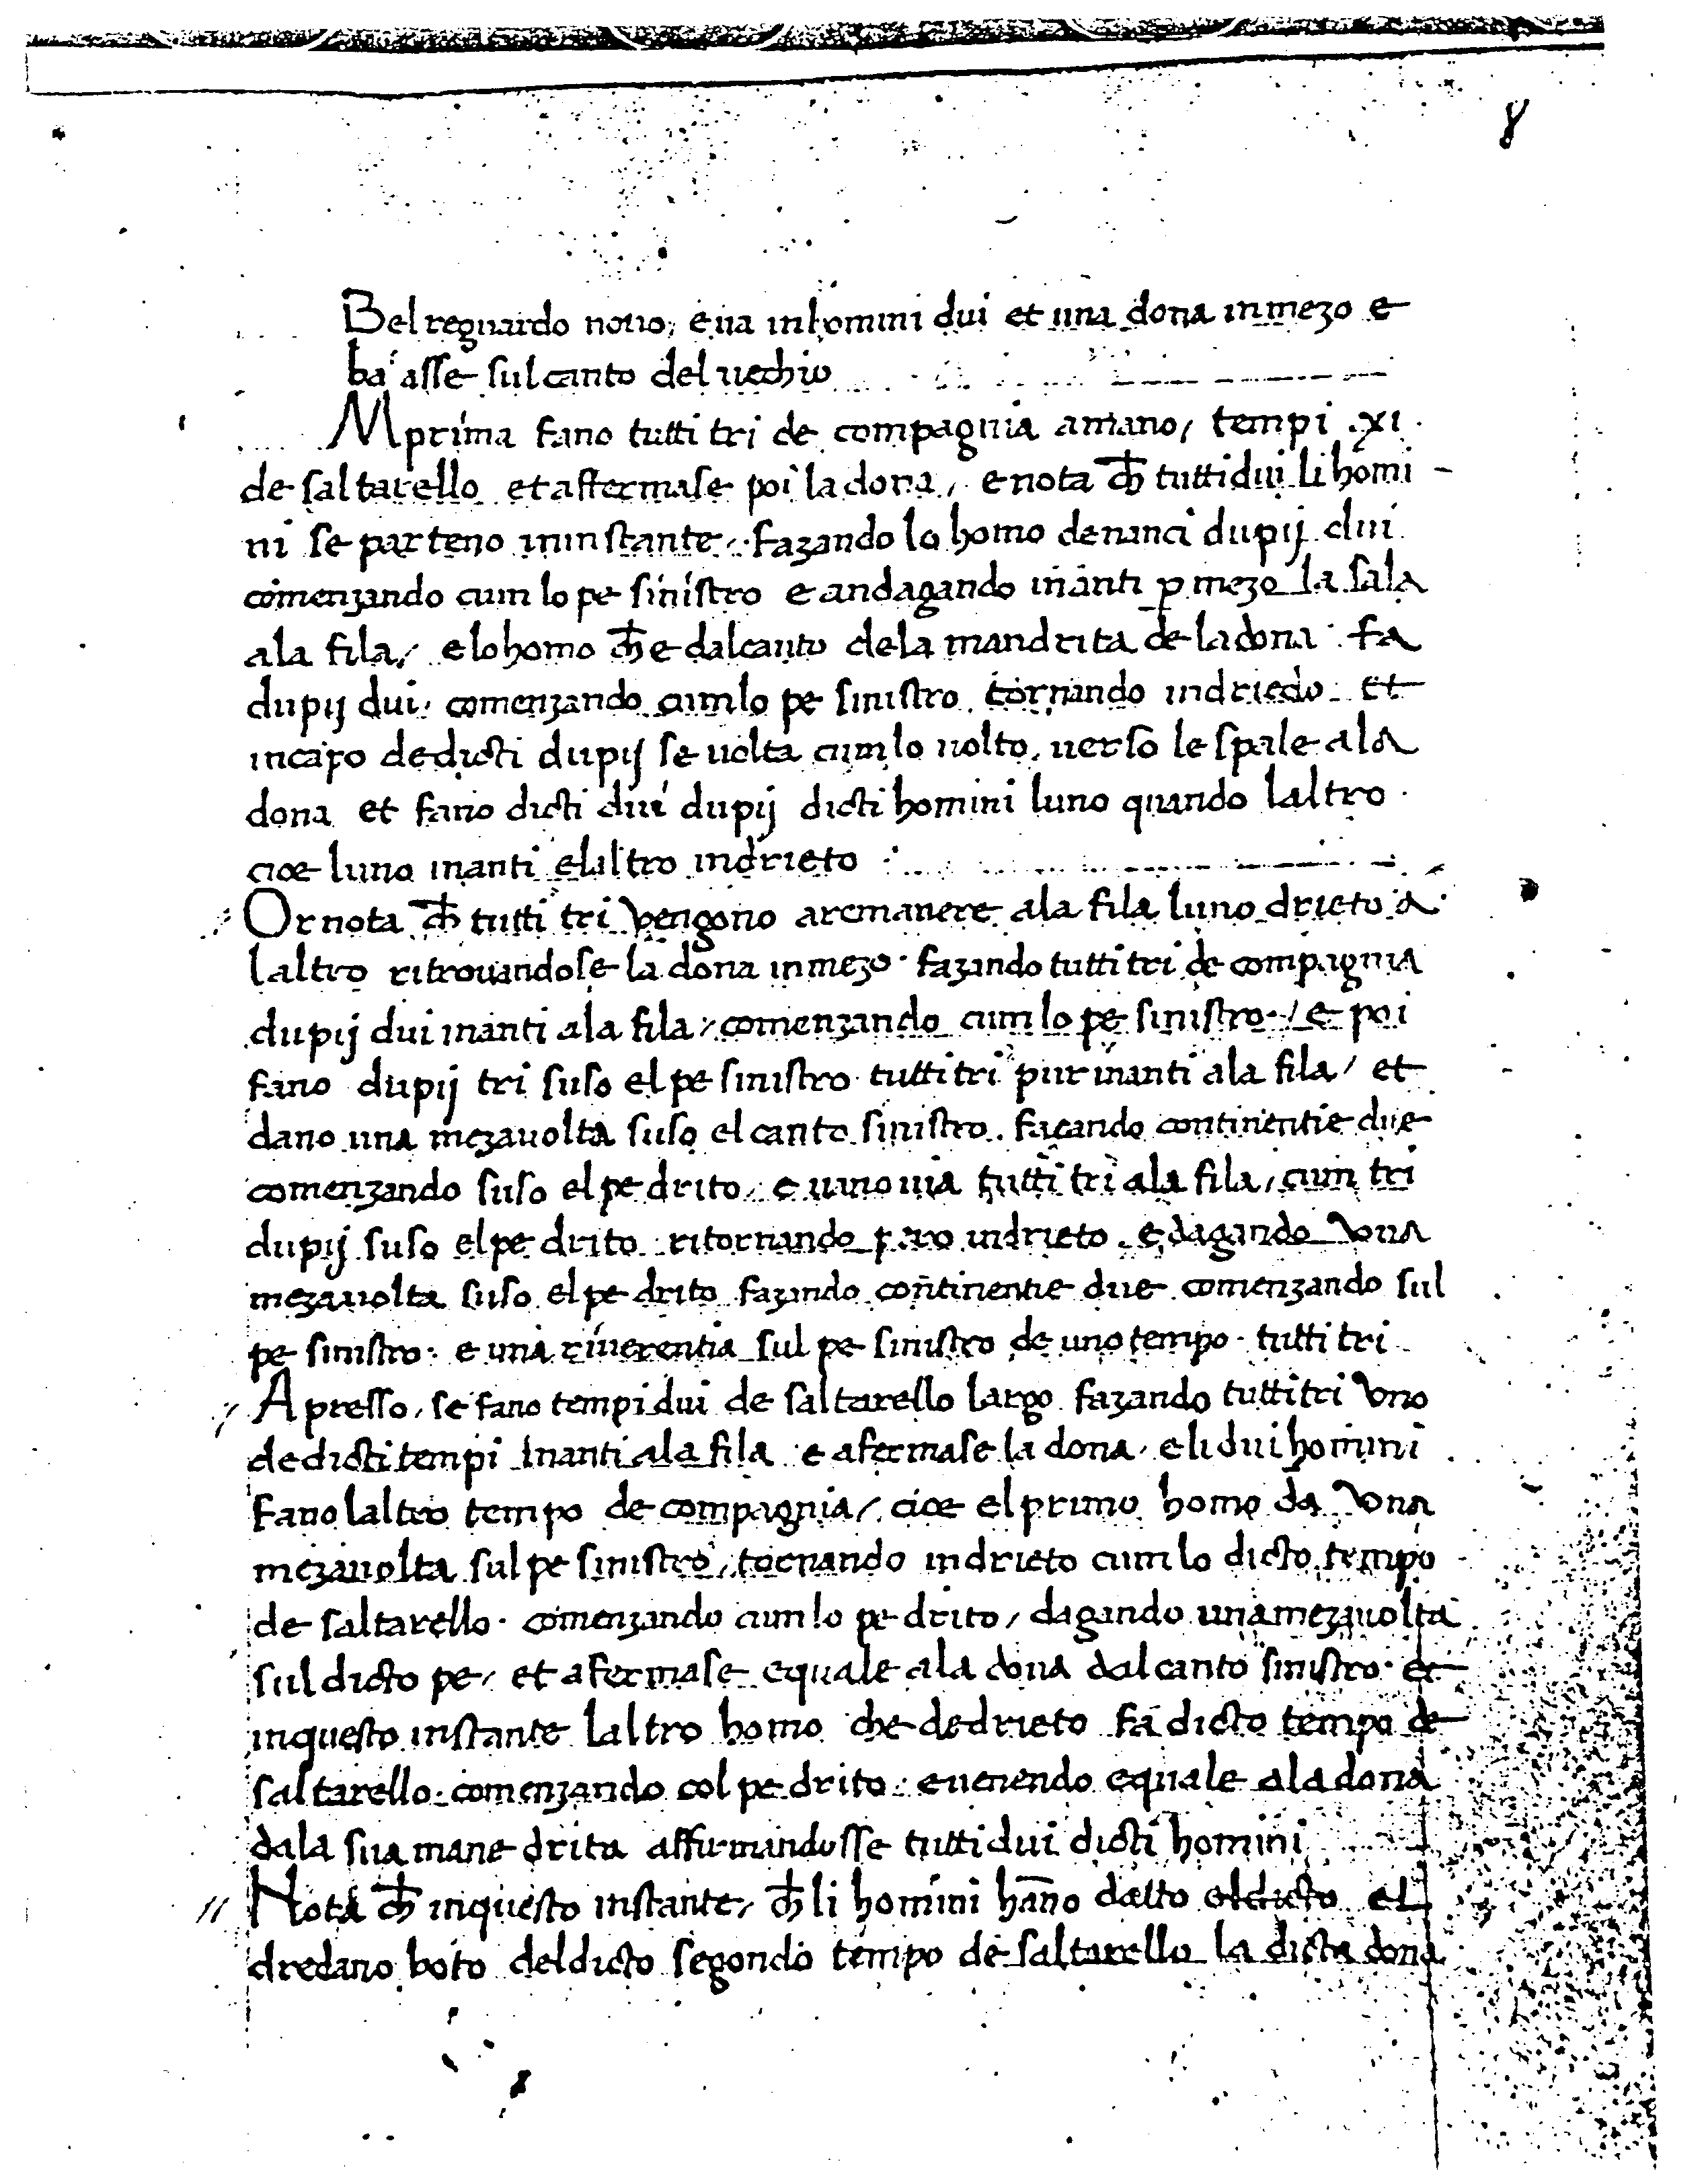 8
Bel reguardo nouo, e ua in homini dui et una dona in mezo e
ba asse sul canto del uechio
Mprima fano tutti tri de compagnia a mano / tempi .xi.
de saltarello et affermase poi la dona / e nota ch̄ tutti dui li homi-
ni se parteno in instante / fazando lo homo denanci dupij dui
comenzando cum lo pe sinistro e andagando inanti ꝑ mezo la sala
ala fila / e lo homo ch̄ e dal canto dela man drita de la dona fa
dupij dui / comenzando cum lo pe sinistro tornando indriedo et
in capo de dicti dupij se uolta cum lo uolto uerso le spale ala
dona et fano dicti dui dupij dicti homini luno quando laltro
cioe luno inanti e laltro indrieto
Or nota ch̄ tutti tri vengono aremanere ala fila luno drieto a
laltro ritrouandose la dona in mezo fazando tutti tri de compagnia
dupij dui inanti ala fila / comenzando cum lo pe sinistro / e poi
fano dupij tri suso el pe sinistro tutti tri pur inanti ala fila / et
dano una mezauolta suso el canto sinistro facando continentie due
comenzando suso el pe drito / e uano uia tutti tri ala fila / cum tri
dupij suso el pe drito ritornando pero indrieto e dagando vna
mezauolta suso el pe drito fazando continentie due comenzando sul
pe sinistro e una riuerentia sul pe sinistro de uno tempo tutti tri
Apresso / se fano tempi dui de saltarello largo fazando tutti tri vno
de dicti tempi inanti ala fila e afermase la dona / e li dui homini
fano laltro tempo de compagnia / cioe el primo homo da vna
mezauolta sul pe sinistro / tornando indrieto cum lo dicto tempo
de saltarello comenzando cum lo pe drito / dagando una mezauolta
sul dicto pe / et afermase equale ala dona dal canto sinistro et
in questo instante laltro homo che dedrieto fa dicto tempo de
saltarello comenzando col pe drito e uenendo equale ala dona
dala sua mane drita affirmandosse tutti dui dicti homini
Nota ch̄ in questo instante / ch̄ li homini hāno datto el dicto el
dredano boto del dicto segondo tempo de saltarello la dicta dona